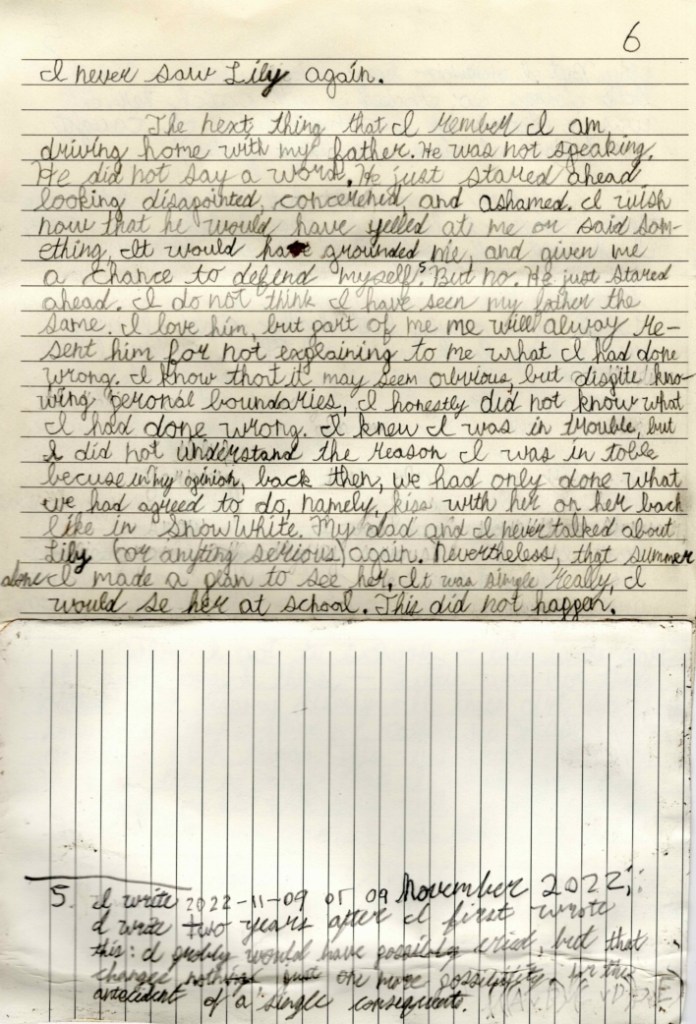 6
I never saw Lily again.
The next thing that I rember I am
driving home with my father. He was not speaking.
He did not say a word. He just stared ahead
looking disapointed, concerened, and ashamed. I wish
now that he would have yelled at me or said som-
ething. It would have grounded me, and given me
a chance to defend myself.5 But no. He just stared
ahead. I do not think I have seen my father the
same. I love him, but part of me me will alway re-
sent him for not explaining to me what I had done
wrong. I know that it may seem obvious, but dispite kno-
wing personal boundaries, I honestly did not know what
I had done wrong. I knew I was in trouble, but
I did not understand the reason I was in toble
becuse in my opinion, back then, we had only done what
we had agreed to do, namely, kiss with her on her back
like in Snow White. My dad and I never talked about
Lily (or anyting serious) again. Nevertheless, that summer
alone I made a plan to see her. It was simple really, I
would se her at school. This did not happen.
5. I write 2022-11-09 or 09 November 2022;
I write two years after I first wrote
this: I probly would have possibly cried, but that
changes nothing but one more possibility in the
antecedent of a single consequent.